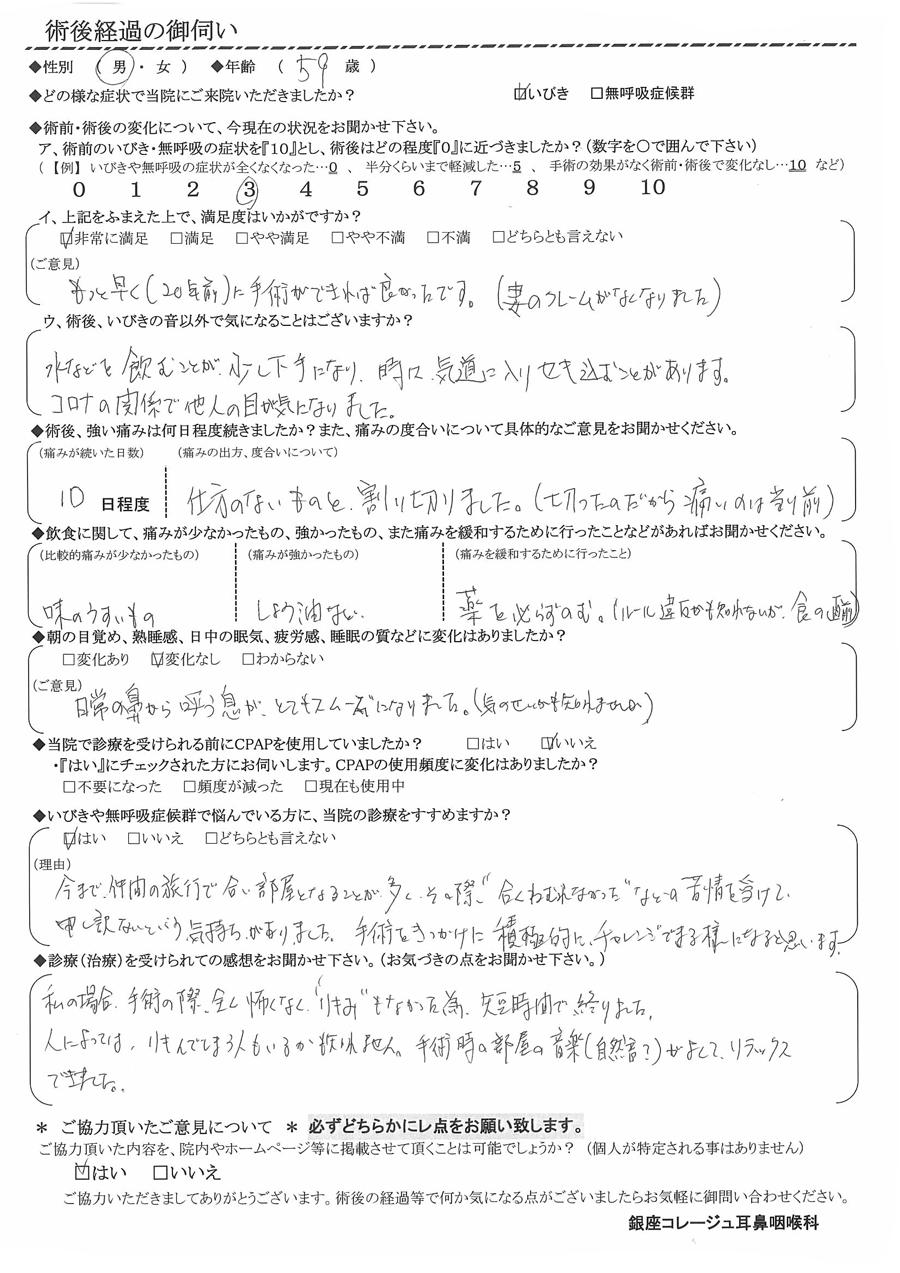 術後経過の御伺い
◆性別 ( 男 ・ 女 ) ◆年齢 ( 59 歳 )
◆どの様な症状で当院にご来院いただきましたか? ☑いびき □無呼吸症候群
◆術前・術後の変化について、今現在の状況をお聞かせ下さい。
ア、術前のいびき・無呼吸の症状を『10』とし、術後はどの程度『0』に近づきましたか?(数字を〇で囲んで下さい)
(【例】 いびきや無呼吸の症状が全くなくなった…0 、 半分くらいまで軽減した…5 、 手術の効果がなく術前・術後で変化なし…10 など)
0 1 2 3 4 5 6 7 8 9 10
イ、上記をふまえた上で、満足度はいかがですか?
☑非常に満足 □満足 □やや満足 □やや不満 □不満 □どちらとも言えない
(ご意見)
もっと早く(20年前)に手術ができれば良かったです。(妻のクレームがなくなりました)
ウ、術後、いびきの音以外で気になることはございますか?
水などを飲むことが、少し下手になり、時に、気道に入りせき込むことがあります。
コロナの関係で他人の目が気になりました。
◆術後、強い痛みは何日程度続きましたか?また、痛みの度合いについて具体的なご意見をお聞かせください。
(痛みが続いた日数) (痛みの出方、度合いについて)
10 日程度 仕方のないものと、割り切りました。(切ったのだから痛いのは当り前)
◆飲食に関して、痛みが少なかったもの、強かったもの、また痛みを緩和するために行ったことなどがあればお聞かせください。
(比較的痛みが少なかったもの) (痛みが強かったもの) (痛みを緩和するために行ったこと)
味のうすいもの しょう油など 薬を必らずのむ。(ルール違反かも知れないが、食の前)
◆朝の目覚め、熟睡感、日中の眠気、疲労感、睡眠の質などに変化はありましたか?
□変化あり ☑変化なし □わからない
(ご意見)
日常の鼻から呼う息が、とてもスムーズになりました。(気のせいかも知れませんが)
◆当院で診療を受けられる前にCPAPを使用していましたか? □はい ☑いいえ
・『はい』にチェックされた方にお伺いします。CPAPの使用頻度に変化はありましたか?
□不要になった □頻度が減った □現在も使用中
◆いびきや無呼吸症候群で悩んでいる方に、当院の診療をすすめますか?
☑はい □いいえ □どちらとも言えない
(理由)
今まで、仲間の旅行で合い部屋となることが多く、その際、"全くねむれなかった"などの苦情を受けて、
申し訳ないという気持ちがありました。手術をきっかけに積極的に、チャレンジできる様になると思います。
◆診療(治療)を受けられての感想をお聞かせ下さい。(お気づきの点をお聞かせ下さい。)
私の場合、手術の際、全く怖くなく、"りきみ"もなかった為、短時間で終りました。
人によっては、りきんでしまう人もいるかも知れません。手術時の部屋の音楽(自然音?)がよくて、リラックス
できました。
* ご協力頂いたご意見について * 必ずどちらかにレ点をお願い致します。
ご協力頂いた内容を、院内やホームページ等に掲載させて頂くことは可能でしょうか? (個人が特定される事はありません)
☑はい □いいえ
ご協力いただきましてありがとうございます。術後の経過等で何か気になる点がございましたらお気軽に御問い合わせください。
銀座コレージュ耳鼻咽喉科